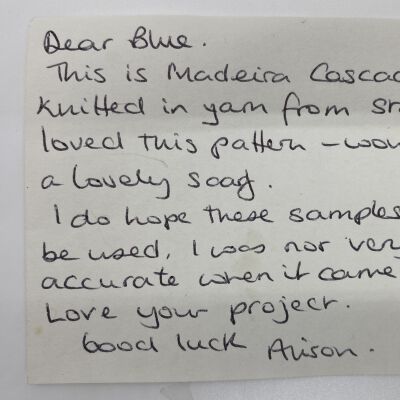 Dear Blue.
This is Madeira Cascad
knitted in yarn from
loved this pattern - wou
a lovely scarf.
I do hope these samples
be used, I was not very
accurate when it came
Love your project.
Good luck Alison.